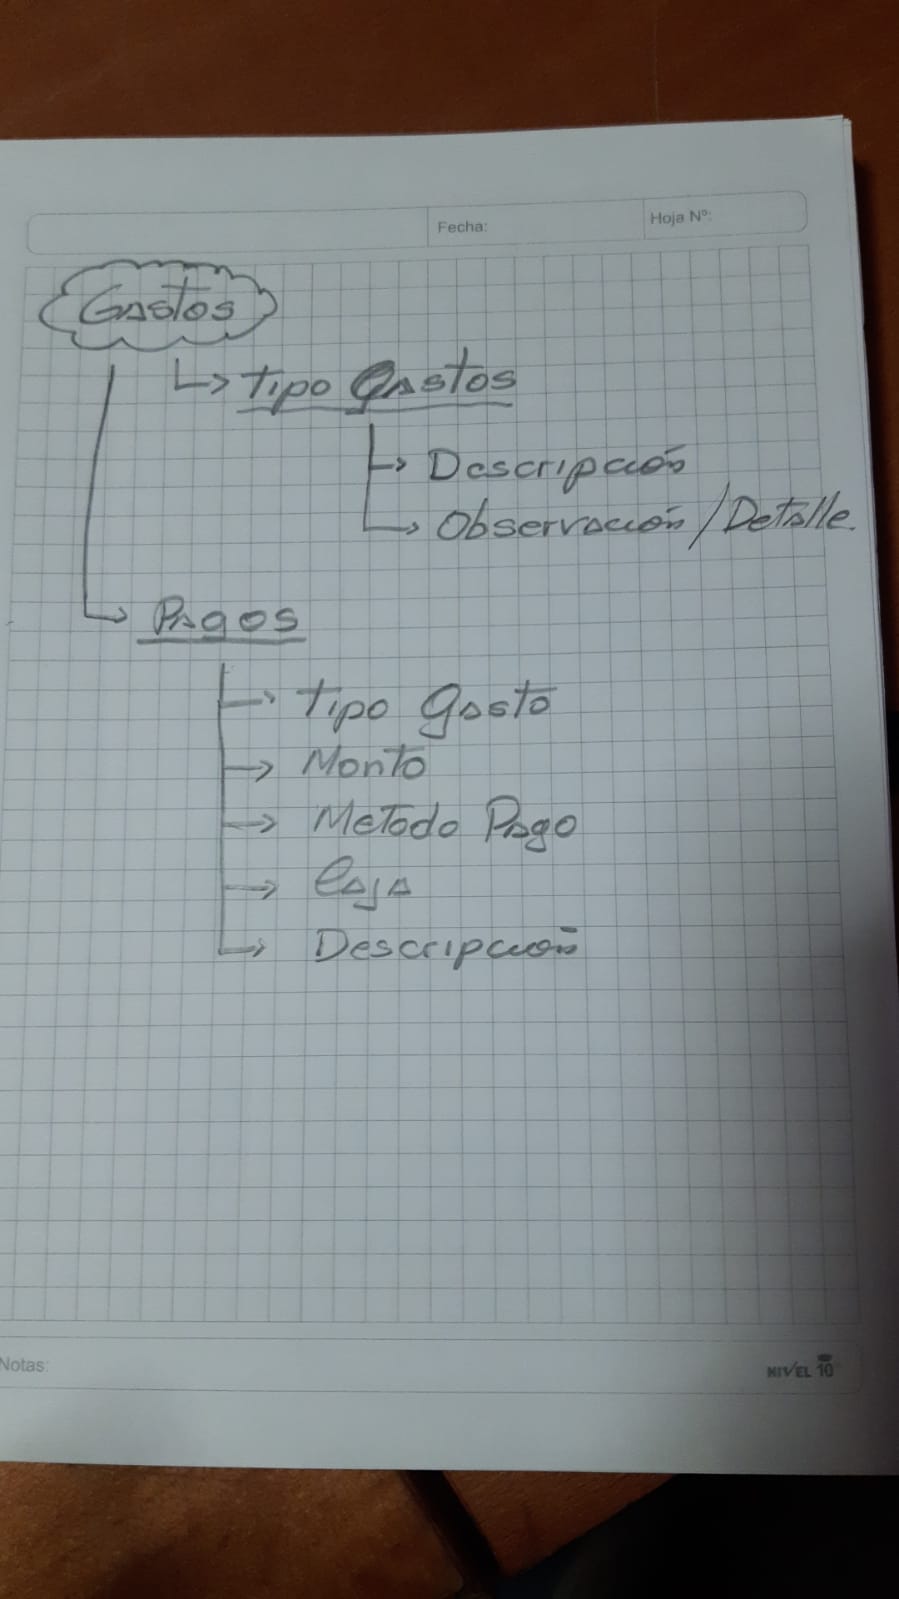 Fecha:
Hoja Nº:
Gastos
Tipo Gastos
Descripción
Observación / Detalle.
Pagos
Tipo Gasto
Monto
Metodo Pago
Caja
Descripción
Notas:
NIVEL 10